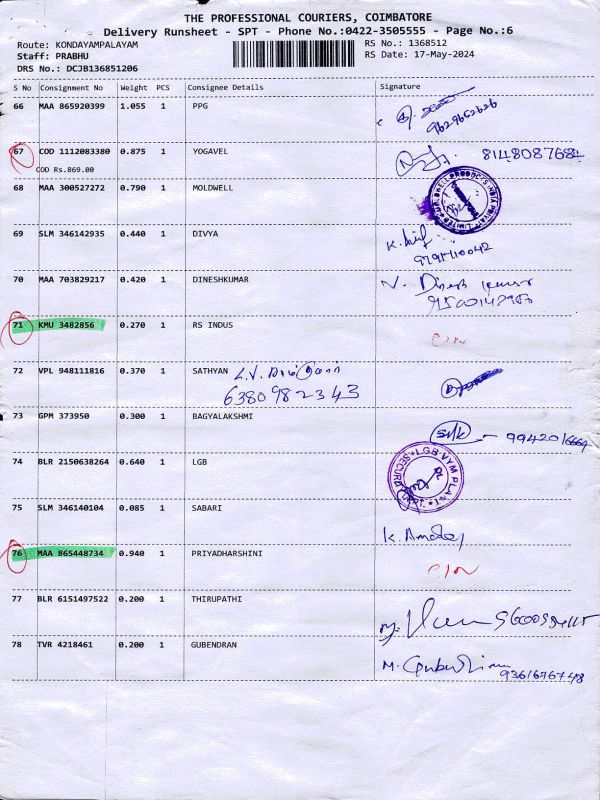 THE PROFESSIONAL COURIERS, COIMBATORE
Delivery Runsheet - SPT - Phone No.:0422-3505555 - Page No.:6
Route: KONDAYAMPALAYAM
Staff: PRABHU
DRS No.: DCJB136851206
RS No.: 1368512
RS Date: 17-May-2024
S No Consignment No Weight PCS Consignee Details Signature
66 MAA 865920399 1.055 1 PPG
9629652626
67 COD 1112083380 0.875 1 YOGAVEL 8148087684
COD Rs.869.00
68 MAA 300527272 0.790 1 MOLDWELL
69 SLM 346142935 0.440 1 DIVYA
70 MAA 703829217 0.420 1 DINESHKUMAR
71 KMU 3482856 0.270 1 RS INDUS
72 VPL 948111816 0.370 1 SATHYAN
6380982343
73 GPM 373950 0.300 1 BAGYALAKSHMI
74 BLR 2150638264 0.640 1 LGB
LGB VYM PLANT
SECURITY DEPT.
75 SLM 346140104 0.085 1 SABARI
76 MAA 865448734 0.940 1 PRIYADHARSHINI
77 BLR 6151497522 0.200 1 THIRUPATHI
78 TVR 4218461 0.200 1 GUBENDRAN
9361676748